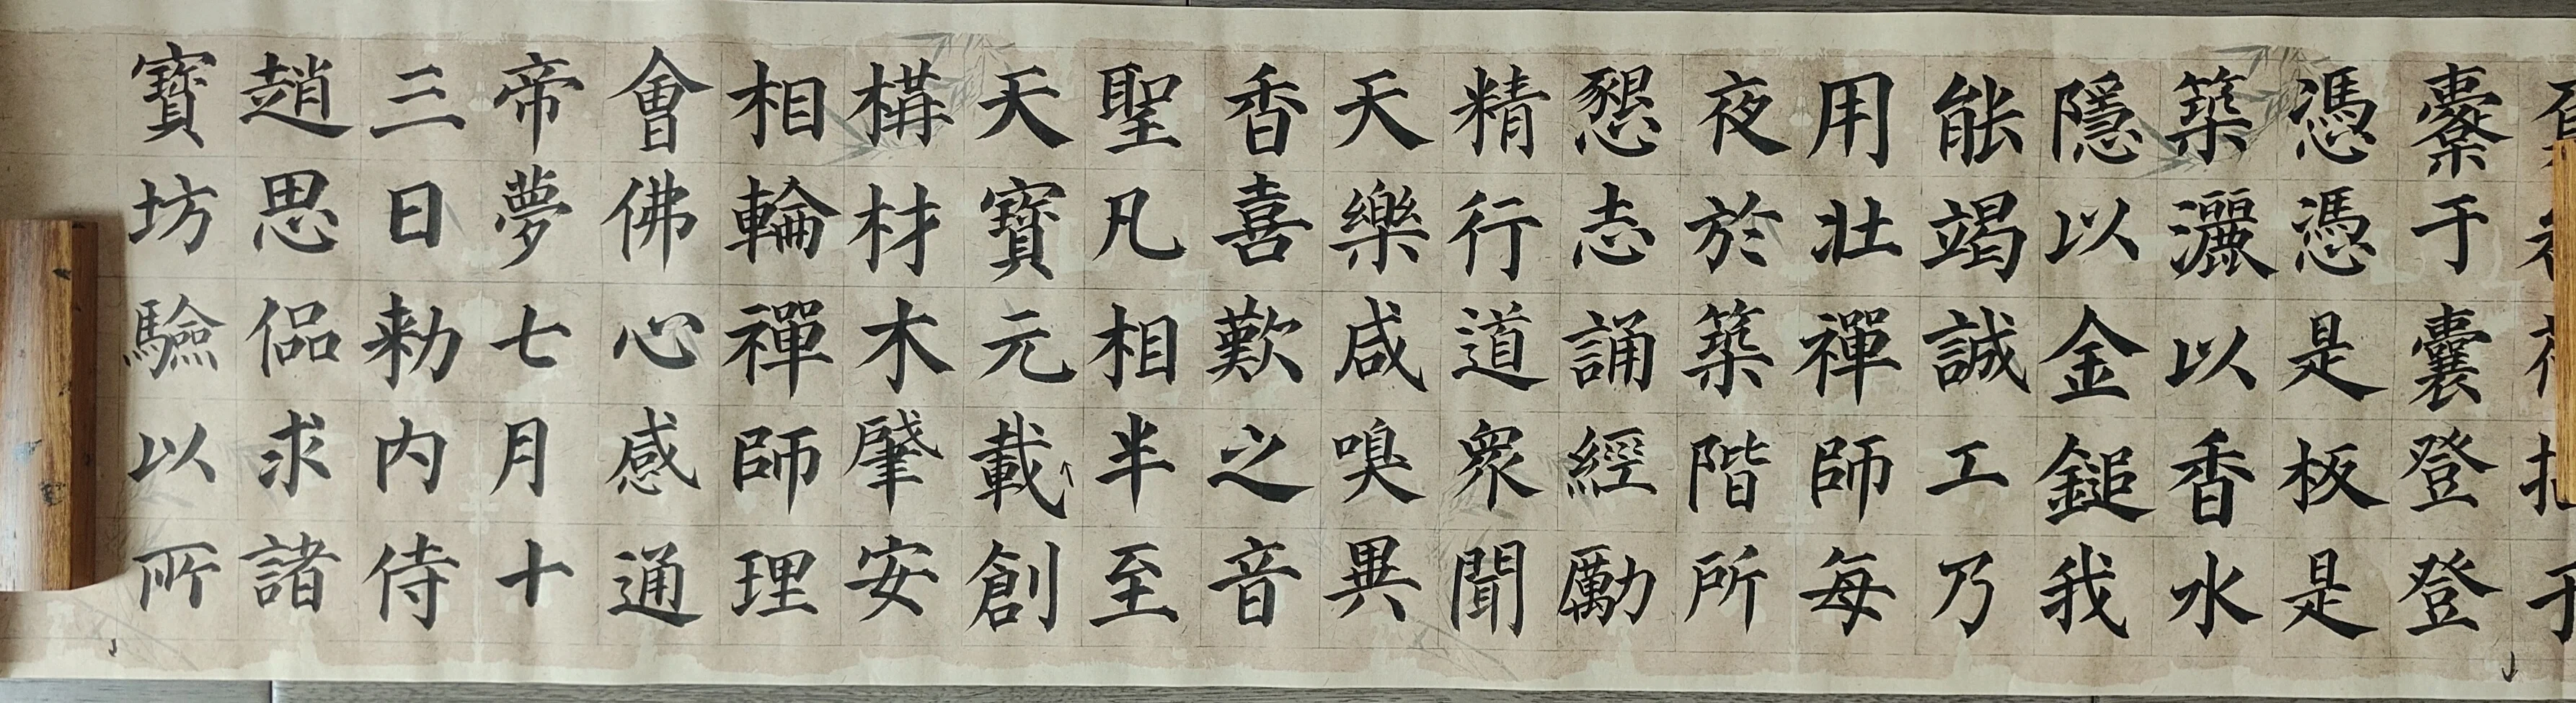 橐于囊登登
慿慿是板是
築灑以香水
隱以金鎚我
能竭誠工乃
用壯禪師每
夜於築階所
懇志誦經勵
精行道衆聞
天樂咸嗅異
香喜歎之音
聖凡相半至
天寶元載創
構材木肇安
相輪禪師理
會佛心感通
帝夢七月十
三日勑内侍
趙思偘求諸
寶坊驗以所